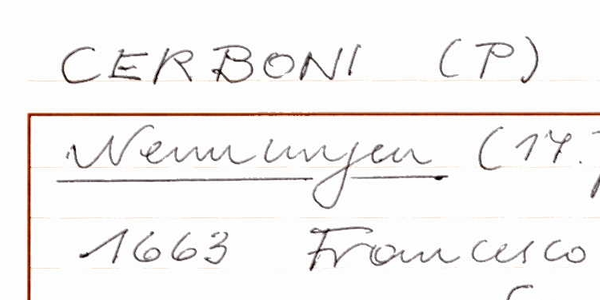 CERBONI (P)
Nennungen (17.
1663 Francesco